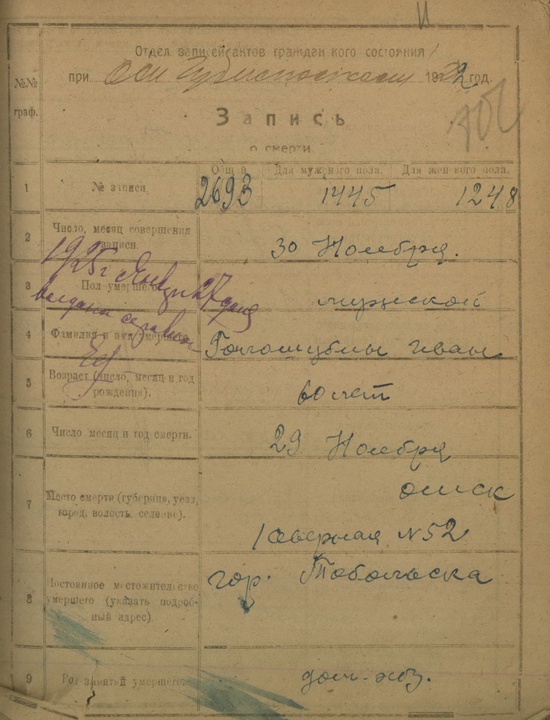 Отдел записей актов гражданского состояния
при 1922 год.
№№ граф.
Запись
о смерти
Общий Для мужского пола. Для женского пола.
1 № записи. 2693 1445 1248
2 Число, месяц совершения
записи. 30 Ноября.
3 Пол умершего мужской
1925 г. 27 дня
выдана справка
4 Фамилия и имя Иван
5 Возраст (число, месяц и год
рождения). 60 лет
6 Число, месяц и год смерти. 29 Ноября
7 Место смерти (губерния, уезд,
город, волость, селение). Омск
1 Северная № 52
8 Постоянное местожительство
умершего (указать подроб-
ный адрес). гор. Тобольска
9 Род занятий умершего. дом-хоз.